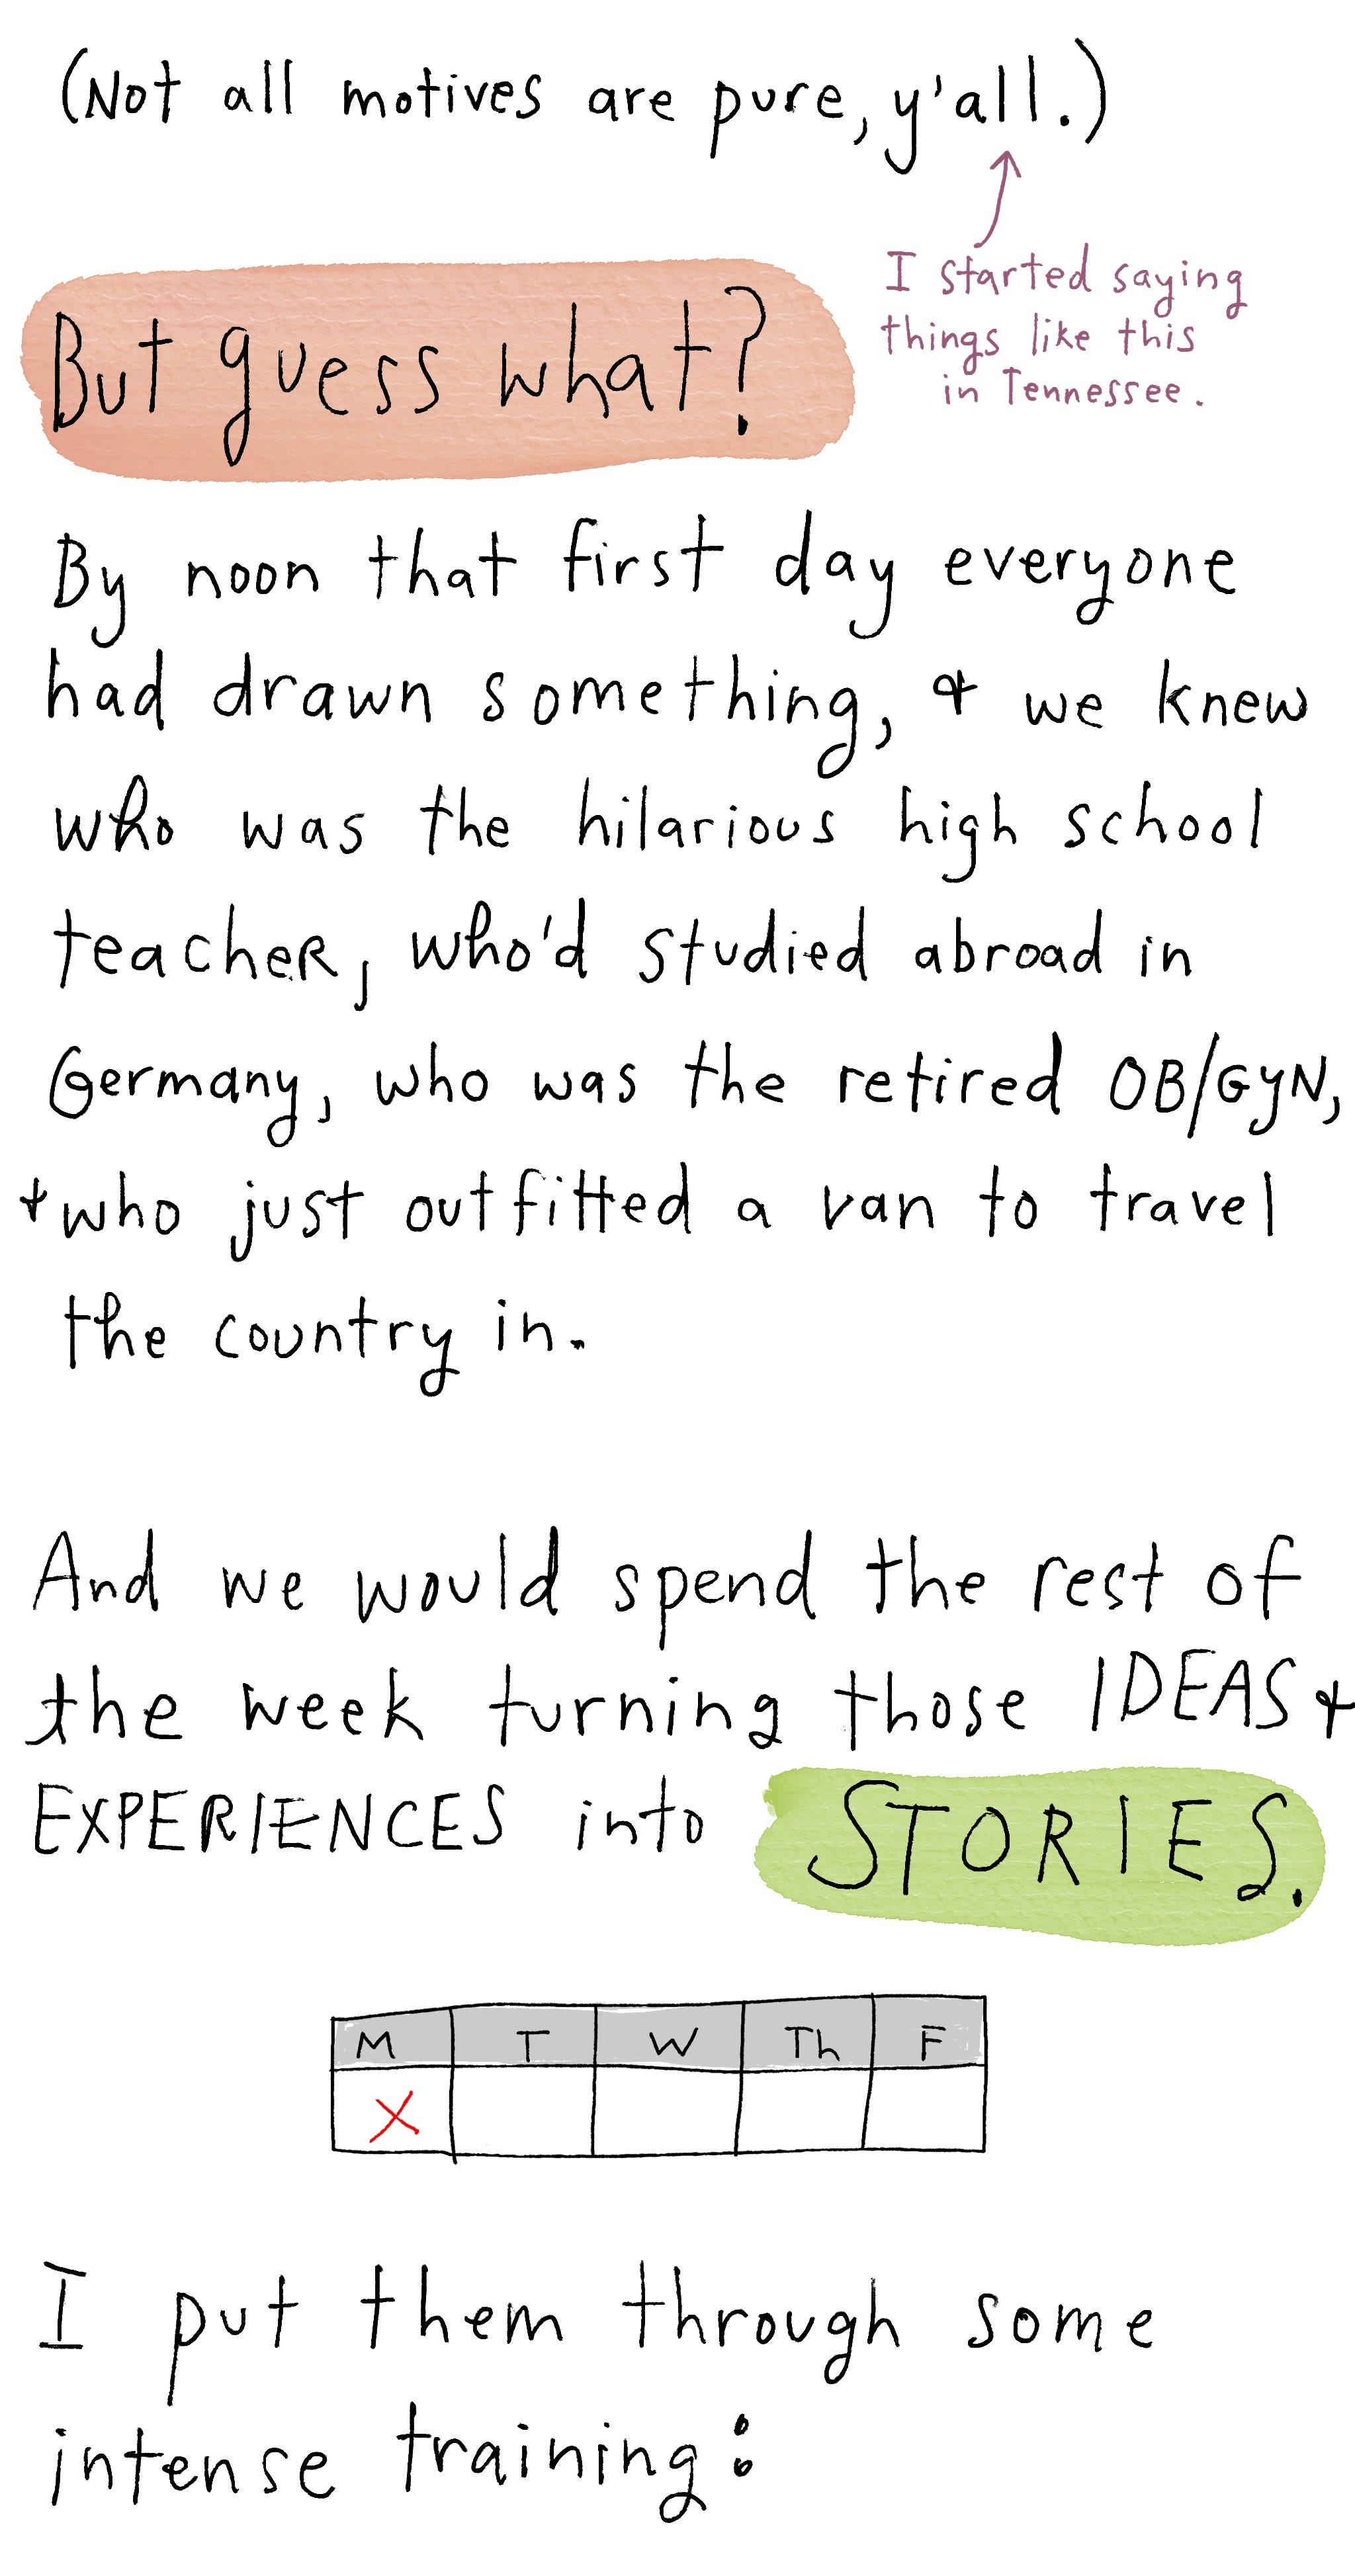 (Not all motives are pure, y'all.)
I started saying
things like this
in Tennessee.
But guess what?
By noon that first day everyone
had drawn something, & we knew
who was the hilarious high school
teacher, who'd studied abroad in
Germany, who was the retired OB/GYN,
& who just outfitted a van to travel
the country in.
And we would spend the rest of
the week turning those IDEAS &
EXPERIENCES into STORIES.
M T W Th F
X
I put them through some
intense training: